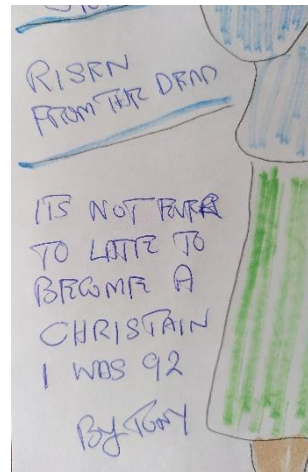 RISEN
FROM THE DEAD
ITS NOT EVER
TO LATE TO
BECOME A
CHRISTAIN
I WAS 92
By TONY